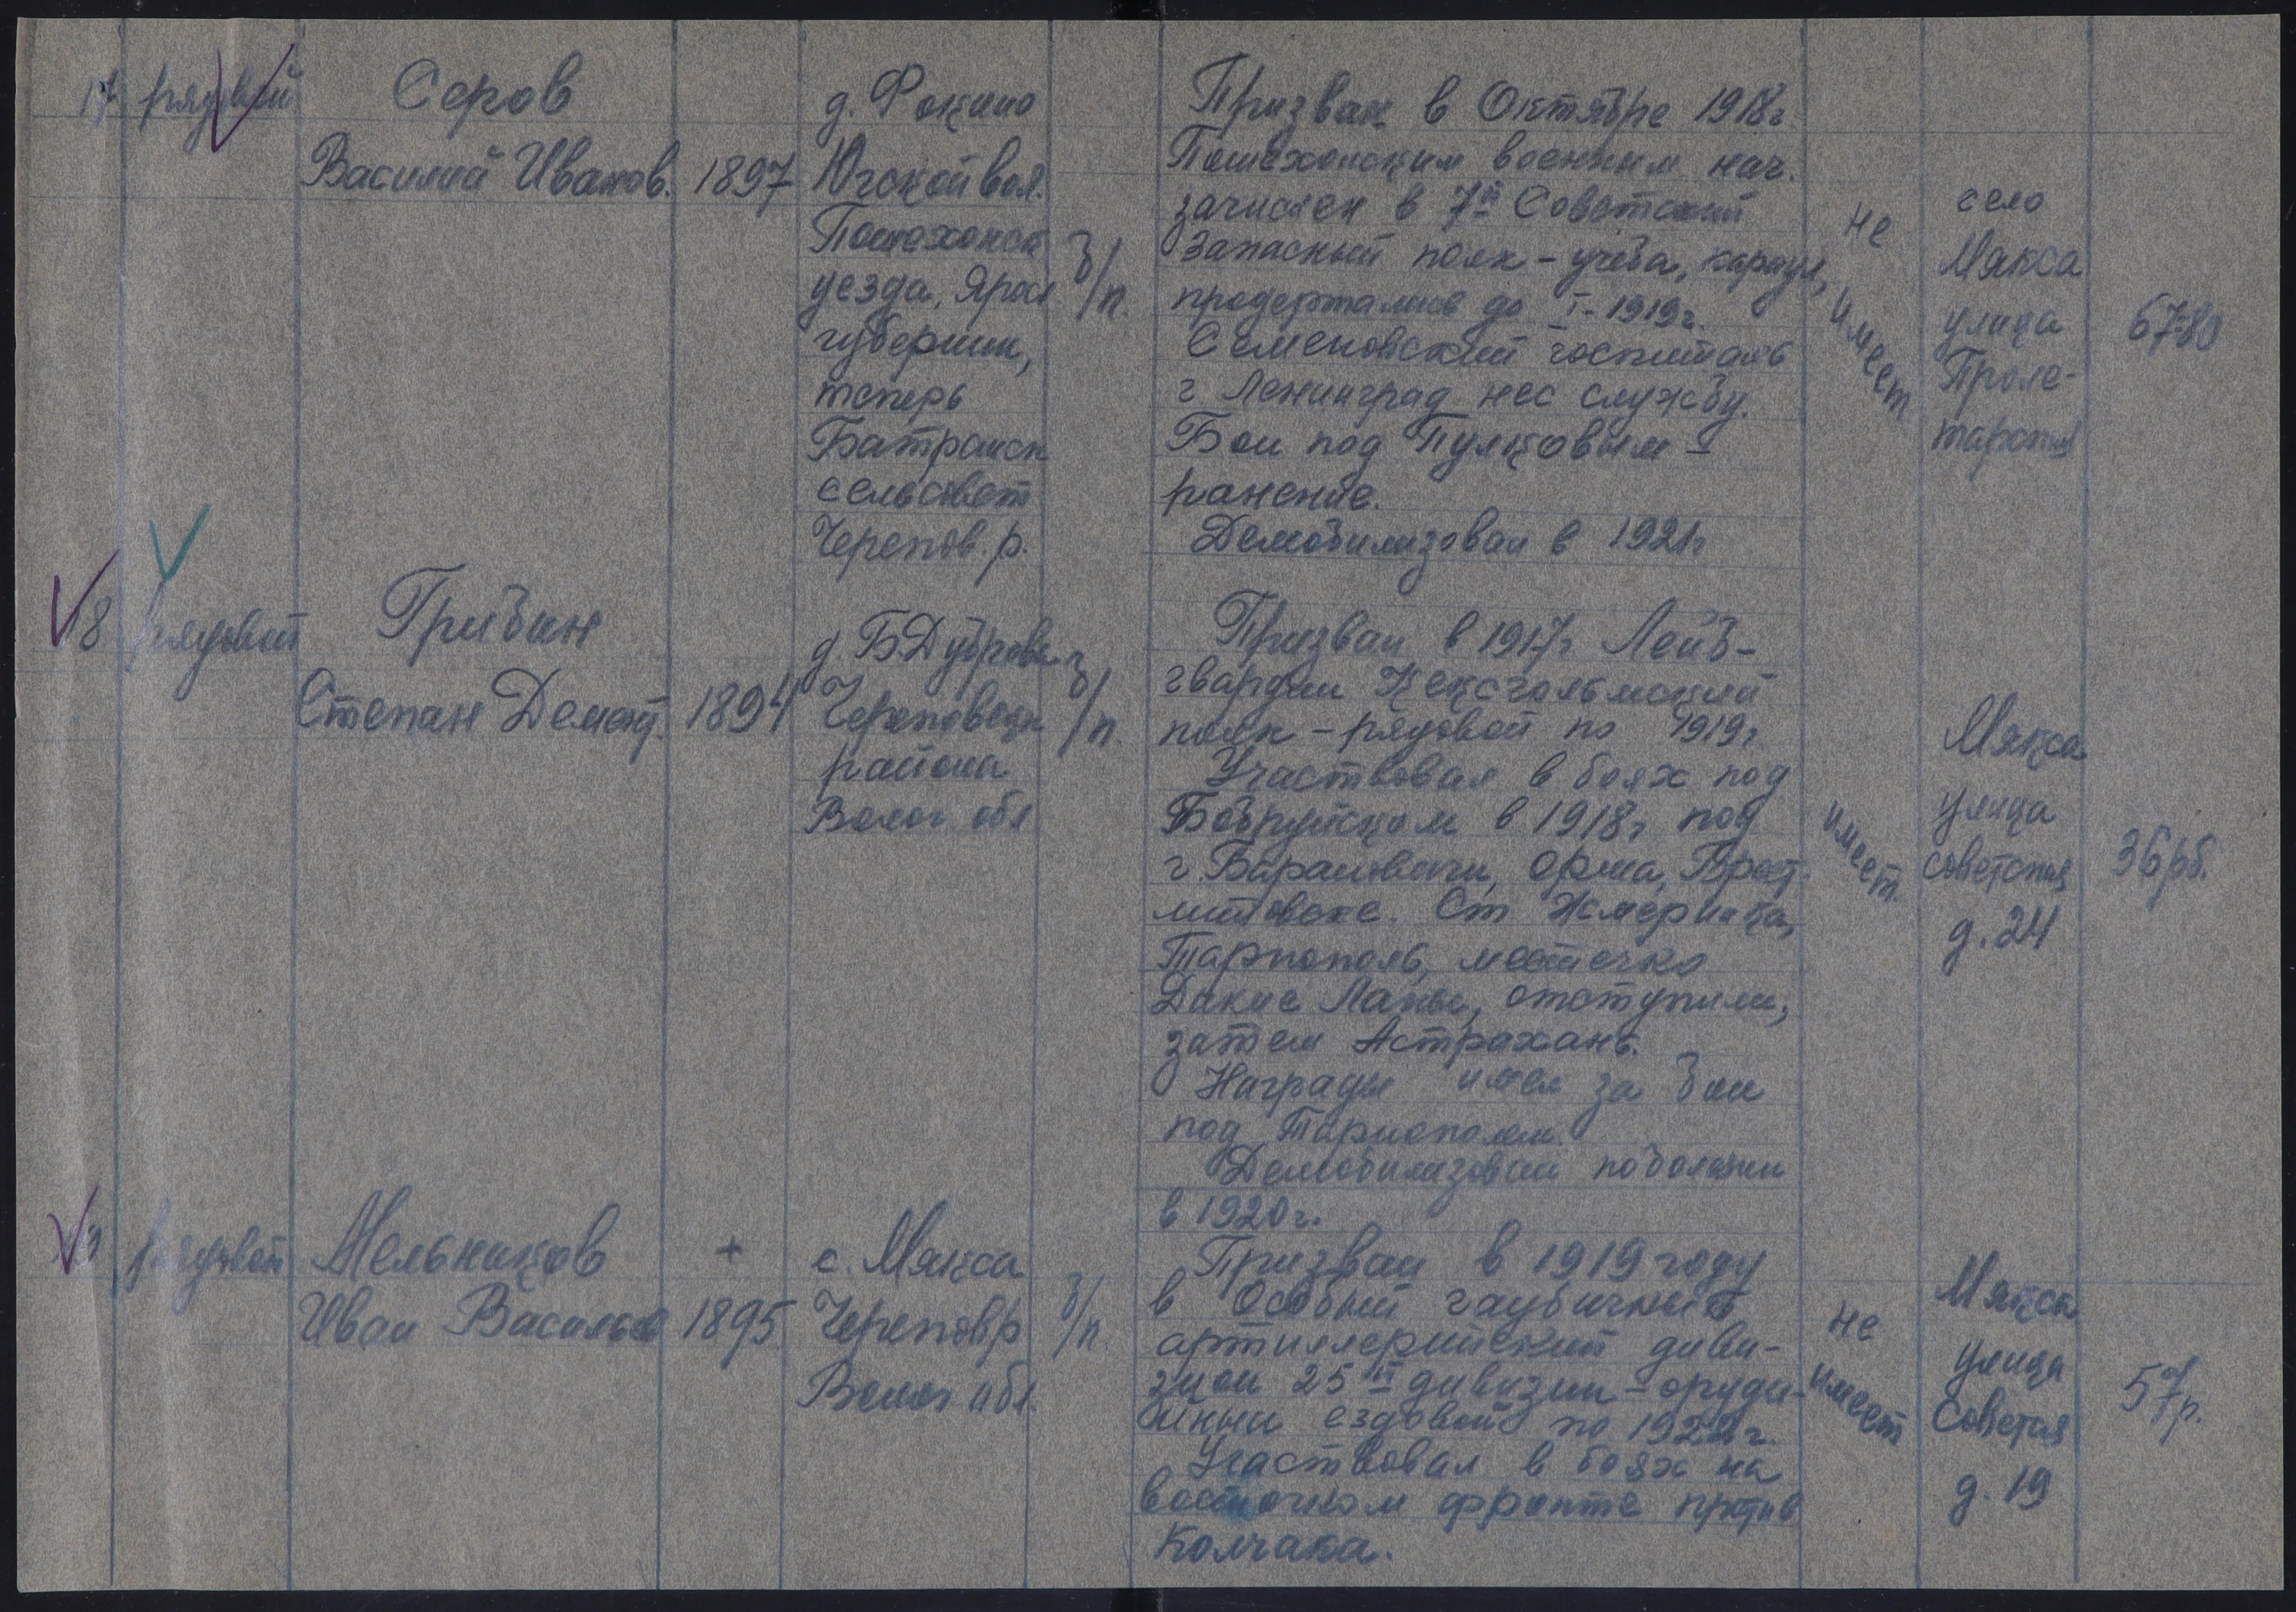 17 рядовой
Серов
Василий Иванов. 1897
д. Фокино
Югской вол.
Пошехонск
уезда, Яросл
губернии,
теперь
Батранск
сельсовет
Черепов. р.
б/п.
Призван в Октябре 1918г.
Пошехонским военным нач.
зачислен в 7й Советский
Запасный полк - учеба, караул,
продержались до I-1919г.
Семеновский госпиталь
г Ленинград нес службу.
Бои под Пулковым -
ранение.
Демобилизован в 1921г
не
имеет
село
Мякса
улица
Проле-
тарская
67-80
18 рядовой
Грибин
Степан Демент. 1894
д. Б Дуброва
Череповецк
района
Волог обл
б/п.
Призван в 1917г Лейб-
гвардии Кексгольмский
полк - рядовой по 1919г
Участвовал в боях под
Бобруйском в 1918г под
г. Барановичи, Орша, Брест-
литовске. Ст Жмеринка,
Тарнополь, местечко
Дикие Ланы, отступили,
затем Астрахань.
Награды имел за бои
под Тарнополем.
Демобилизован по болезни
в 1920г.
имеет.
Мякса
улица
советская
д. 24
36 рб.
рядовой
Мельников
Иван Васильев
+
1895
с. Мякса
Черепов р
Волог обл.
б/п.
Призван в 1919 году
в Особый гаубичный
артиллерийский диви-
зион 25 й дивизии - оруди-
йный ездовой по 1922г.
Участвовал в боях на
восточном фронте против
Колчака.
не
имеет
Мякса
улица
Советск
д. 19
57р.